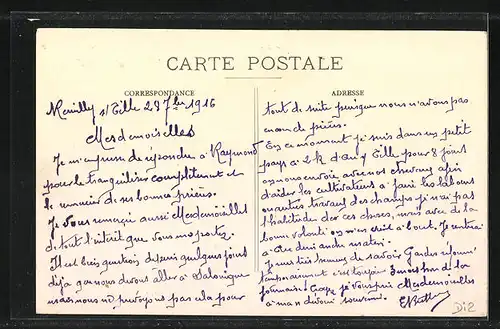 CARTE POSTALE
CORRESPONDANCE
ADRESSE
s/ Tille 28 7bre 1916
Mesdemoiselles
Je m'empresse de répondre à Raymond
pour le tranquiliser complètement et
le remercier de ses bonnes prières.
Je vous remercie aussi Mesdemoiselles
de tout l'intérêt que vous me portez.
Il est bien question depuis quelques jours
déjà que nous devons aller à Salonique
mais nous ne prévoyons pas cela pour
tout de suite puisque nous n'avons pas
encore de pièces.
En ce moment je suis dans un petit
pays à 2 k d' Tille pour 8 jours
on nous envoie avec nos chevaux afin
d'aider les cultivateurs à faire les labours
ou autres travaux des champs je n'ai pas
l'habitude de ces choses, mais avec de la
bonne volonté on en vient à bout. Je rentrerai
à demi anche matin.
Je suis très heureux de savoir Gardes réformé
temporairement c'est toujours 3 mois hors de la
fournaise. Croyez je vous prie Mesdemoiselles
à mon dévoué souvenir.
Di2